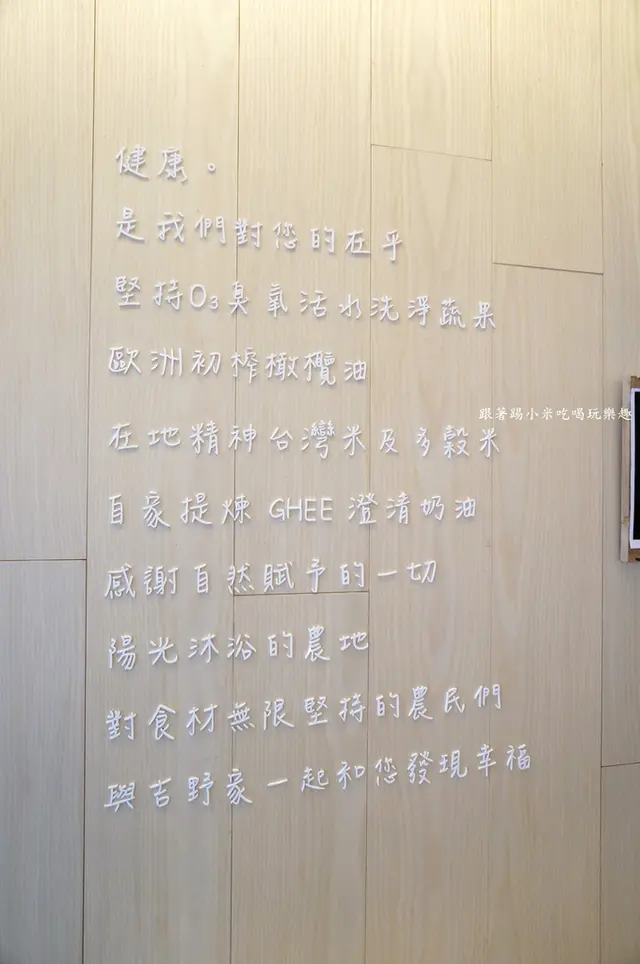 健康。
是我們對您的在乎
堅持O₃臭氧活水洗淨蔬果
歐洲初榨橄欖油
在地精神台灣米及多穀米
自家提煉 GHEE 澄清奶油
感謝自然賦予的一切
陽光沐浴的農地
對食材無限堅持的農民們
與吉野家一起和您發現幸福
跟著踢小米吃喝玩樂趣